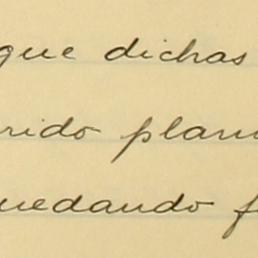 que dichas
rido plan
uedando f